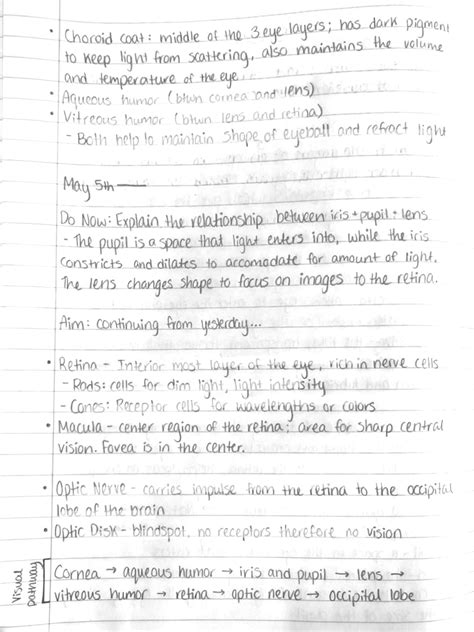 • Choroid coat: middle of the 3 eye layers; has dark pigment
to keep light from scattering, also maintains the volume
and temperature of the eye.
• Aqueous humor (btwn cornea and lens)
• Vitreous humor (btwn lens and retina)
- Both help to maintain shape of eyeball and refract light
May 5th —
Do Now: Explain the relationship between iris + pupil + lens
- The pupil is a space that light enters into, while the iris
constricts and dilates to accomodate for amount of light.
The lens changes shape to focus on images to the retina.
Aim: continuing from yesterday...
• Retina - Interior most layer of the eye, rich in nerve cells
- Rods: cells for dim light, light intensity
- Cones: Receptor cells for wavelengths or colors
• Macula - center region of the retina; area for sharp central
vision. Fovea is in the center.
• Optic Nerve - carries impulse from the retina to the occipital
lobe of the brain
• Optic Disk - blindspot, no receptors therefore no vision
Visual pathway
Cornea → aqueous humor → iris and pupil → lens →
vitreous humor → retina → optic nerve → occipital lobe